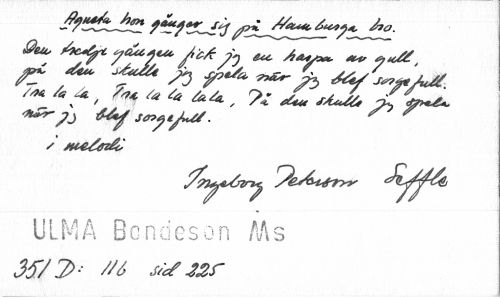 Agneta hon gångar sig på Hamburga bro.
Den tredje gången fick jg en harpa av gull,
på den skulle jg spela när jg blef sorgefull.
Tra la la, Tra la la lala, På den skulle jg spela
när jg blef sorgefull.
i melodi
Ingeborg Peterson Seffle
ULMA Bondeson Ms
351 D: 116 sid 225